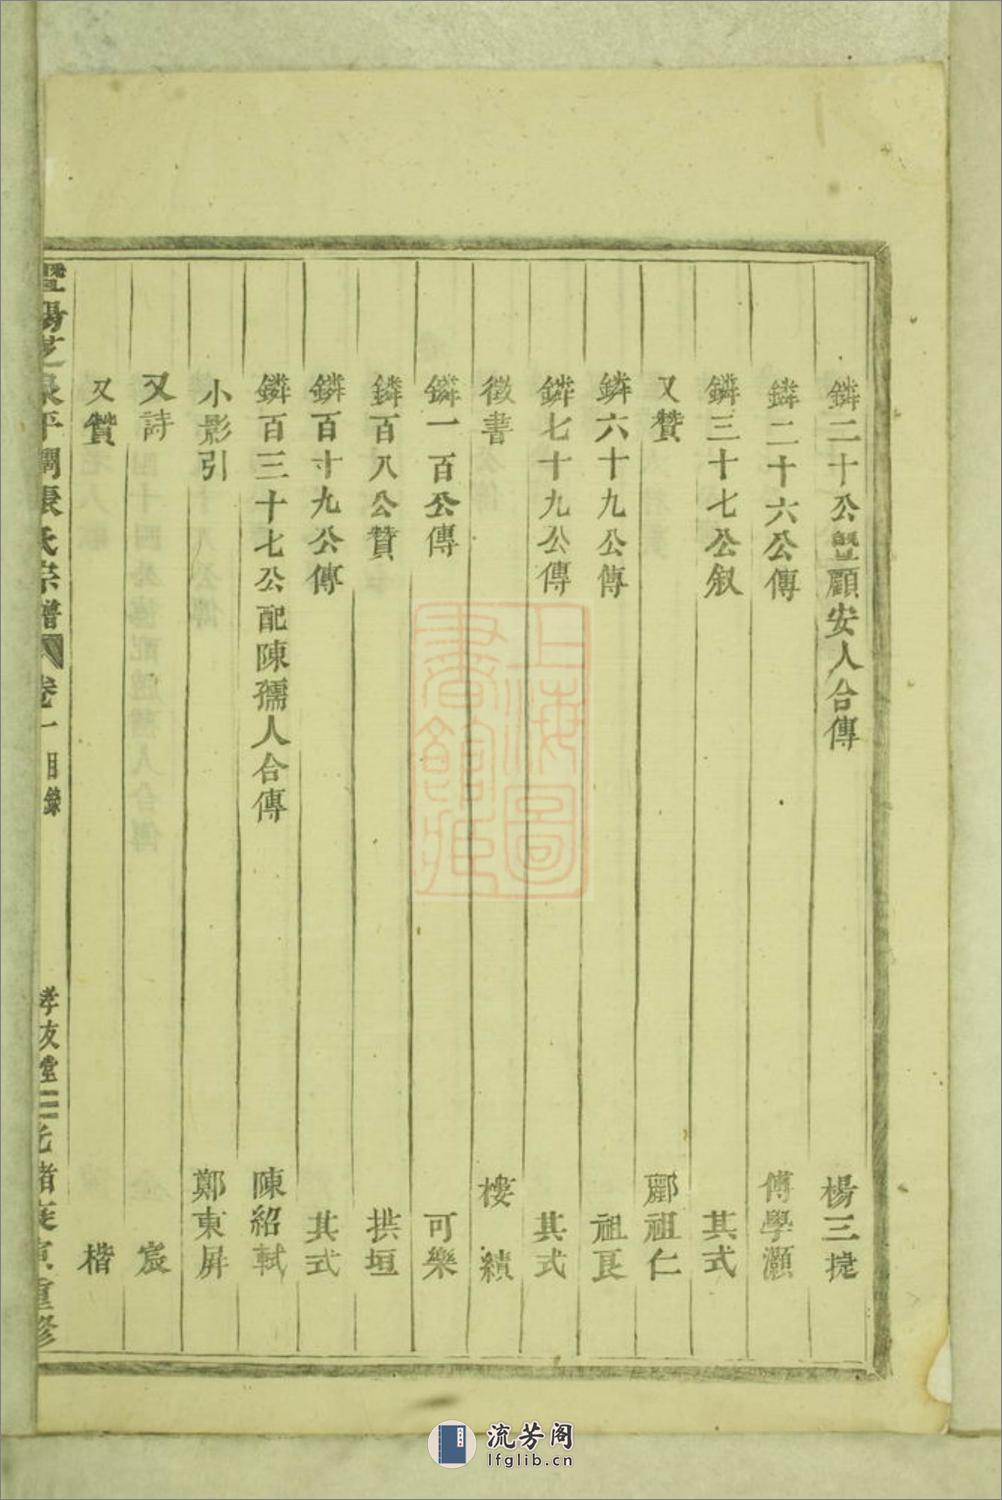 鏻二十公暨顧安人合傳 楊三㨗
鏻二十六公傳 傅學灝
鏻三十七公叙 其式
又贊 酈祖仁
鏻六十九公傳 祖良
鏻七十九公傳 其式
徵書 樓績
鏻一百公傳 可樂
鏻百八公贊 拱垣
鏻百十九公傳 其式
鏻百三十七公配陳孺人合傳 陳紹軾
小影引 鄭東屏
又詩 宸
又贊 楷
暨陽芝泉平闊張氏宗譜 卷一 目錄 孝友堂 光緒庚寅重修
上海圖書館藏
流芳阁
lfglib.cn